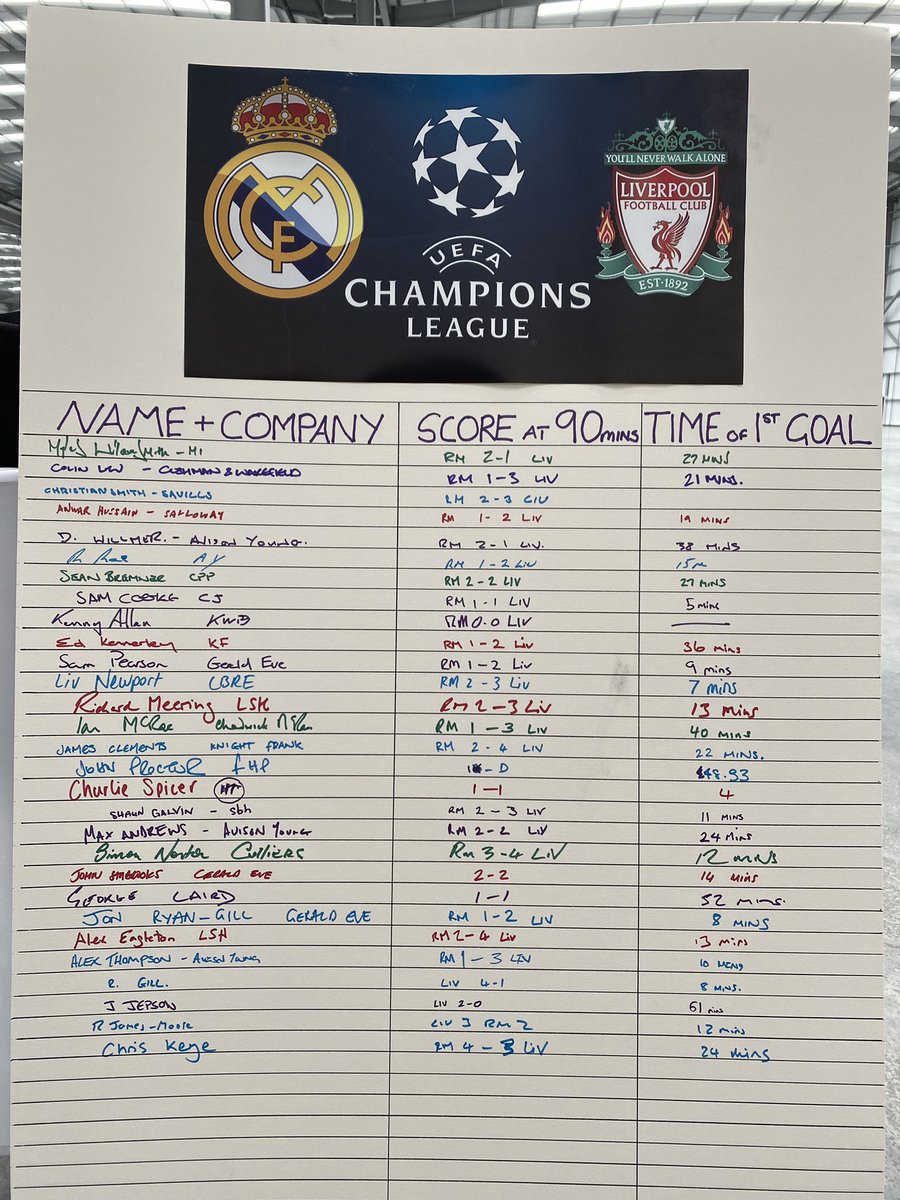 YOU'LL NEVER WALK ALONE
LIVERPOOL
FOOTBALL CLUB
EST·1892
UEFA
CHAMPIONS
LEAGUE
NAME + COMPANY SCORE AT 90 mins TIME OF 1ST GOAL
RM 2-1 LIV 27 MINS
COLIN - CUSHMAN & WAKEFIELD RM 1-3 LIV 21 MINS.
CHRISTIAN SMITH - SAVILLS 2-3
ANWAR HUSSAIN - SALLOWAY RM 1-2 LIV 19 MINS
D. WILLMER. - AVISON YOUNG. RM 2-1 LIV. 38 MINS
AY RM 1-2 LIV 15m
SEAN BREMNER CPP RM 2-2 LIV 27 MINS
SAM COOKE CJ RM 1-1 LIV 5 mins
Kenny Allan KWB RM 0-0 LIV
Ed Kennerley KF RM 1-2 Liv 36 mins
Sam Pearson Gerald Eve RM 1-2 LIV 9 mins
Liv Newport CBRE RM 2-3 Liv 7 mins
Richard Meering LSH RM 2-3 LIV 13 mins
Ian McRae RM 1-3 LIV 40 mins
JAMES CLEMENTS KNIGHT FRANK RM 2-4 LIV 22 MINS.
JOHN PROCTOR FHP -0 48.93
Charlie Spicer HT 1-1 4
SHAUN GALVIN - sbh RM 2-3 LIV 11 MINS
MAX ANDREWS - AVISON YOUNG RM 2-2 LIV 24 mins
Simon Norton Colliers Rm 3-4 LIV 12 mins
JOHN GERALD EVE 2-2 14 mins
GEORGE LAIRD 1-1 52 mins.
JON RYAN-GILL GERALD EVE RM 1-2 LIV 8 MINS
Alex Eagleton LSH RM 2-4 Liv 13 mins
ALEX THOMPSON - AVISON YOUNG RM 1-3 LIV 10 MINS
R. GILL. LIV 4-1 8 MINS.
J JEPSON LIV 2-0 61 mins
R James-Moore LIV 3 RM 2 12 mins
Chris Keye RM 4-3 LIV 24 mins